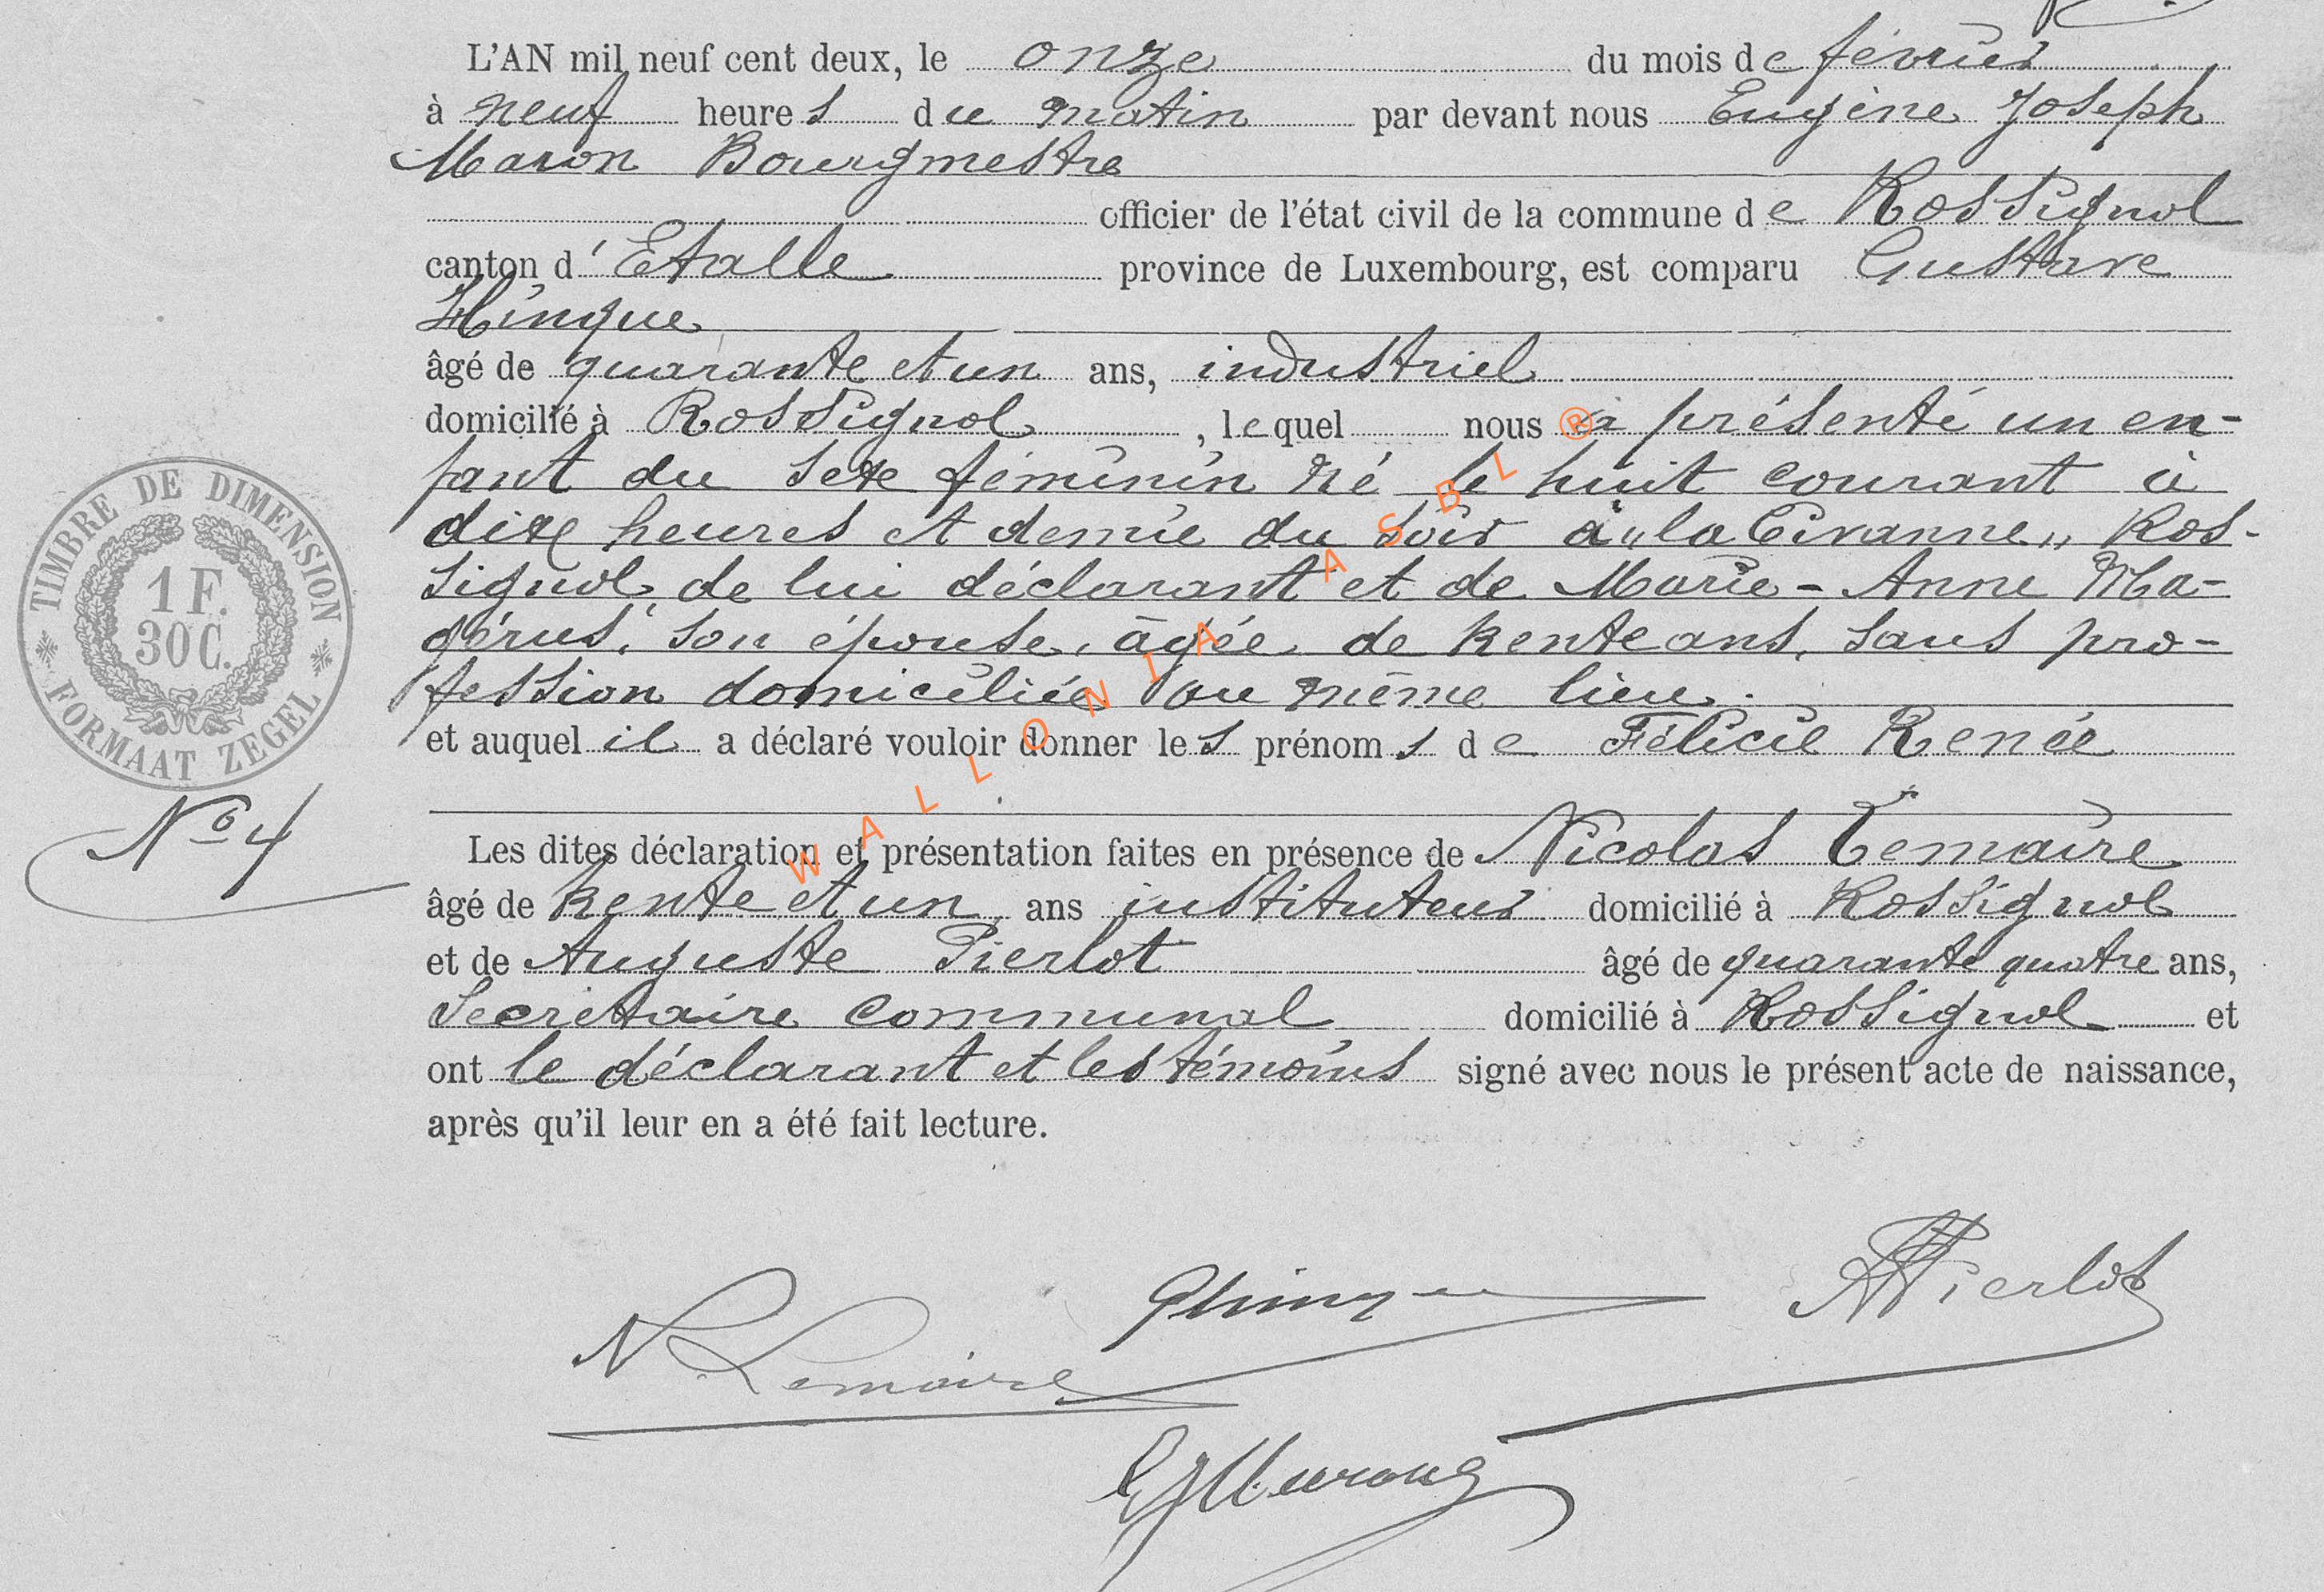 L'AN mil neuf cent deux, le onze du mois de février
à neuf heures du matin par devant nous Eugène Joseph
Maron Bourgmestre
officier de l'état civil de la commune de Rossignol
canton d'Etalle province de Luxembourg, est comparu Gustave
Hinque
âgé de quarante et un ans, industriel
domicilié à Rossignol, lequel nous a présenté un en-
fant du sexe féminin né le huit courant à
dixe heures et demie du soir à "la Civanne" Ros-
signol de lui déclarant et de Marie-Anne Ma-
gérus, son épouse, âgée de trente ans, sans pro-
fession domiciliée au même lieu.
et auquel il a déclaré vouloir donner les prénoms de Félicie Renée
Les dites déclaration et présentation faites en présence de Nicolas Lemaire
âgé de trente et un ans instituteur domicilié à Rossignol
et de Auguste Pierlot âgé de quarante quatre ans,
Secrétaire communal domicilié à Rossignol et
ont le déclarant et les témoins signé avec nous le présent acte de naissance,
après qu'il leur en a été fait lecture.
TIMBRE DE DIMENSION
1 F.
30 C.
FORMAAT ZEGEL
No 4
WALLONIA ASBL ®
GHinque
N Lemaire
A Pierlot
EJMaron